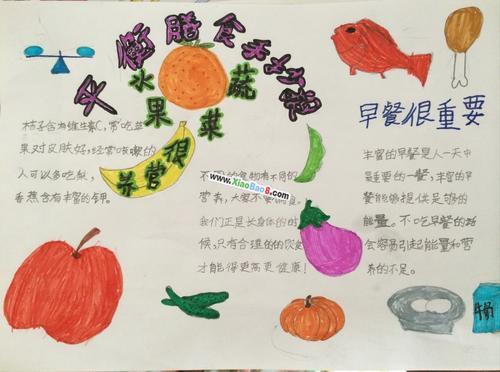 争做膳食
水果
蔬菜
很
营养
桔子含有维生素C，常吃苹
果对皮肤好，经常咳嗽的
人可以多吃梨，
香蕉含有丰富的钾。
不同的食物有不同的
营养，大家不要偏食。
我们正是长身体的时
候，只有合理的饮食
才能长得更高更健康！
www.XiaoBao8.com
早餐很重要
丰富的早餐是人一天中
最重要的一餐，丰富的早
餐能够提供足够的
能量。不吃早餐的话
会容易引起能量和营
养的不足。
牛奶